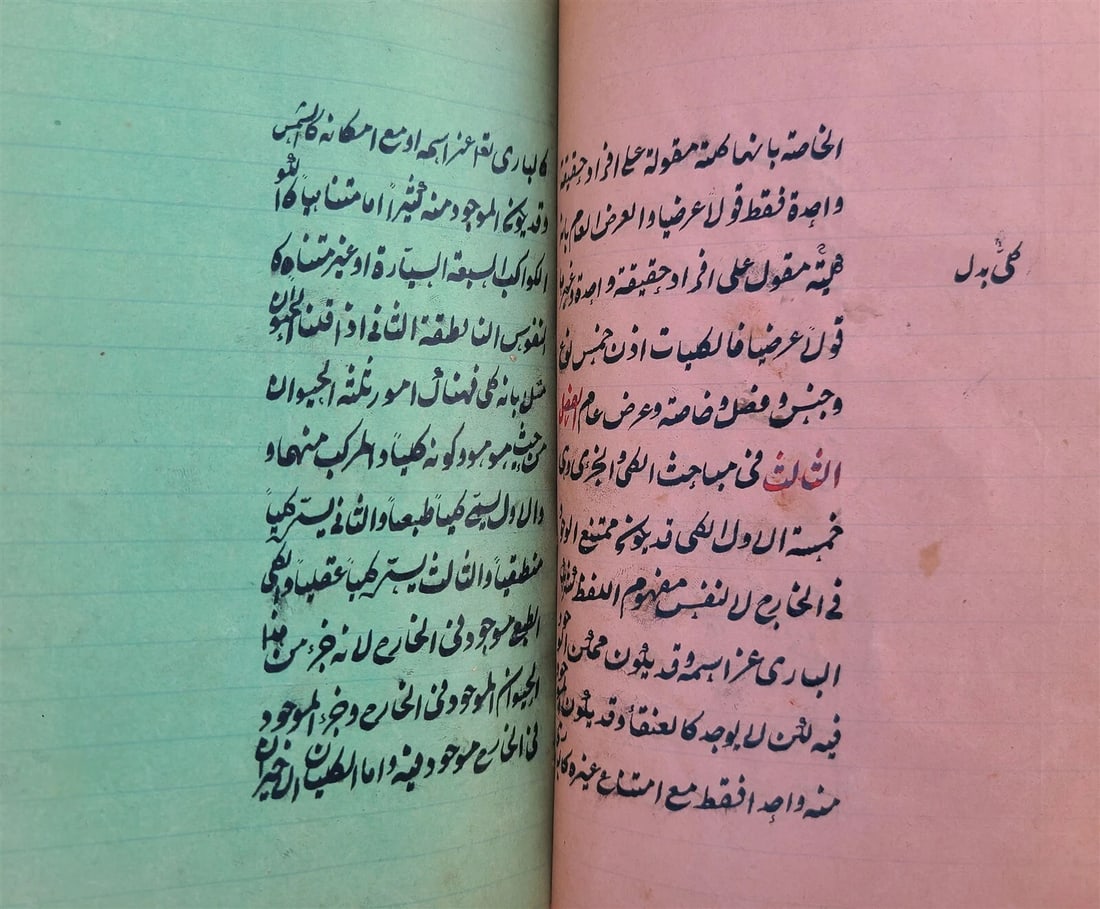 الخاصة بانها كلية مقولة على افراد حقيقة
واحدة فقط قولا عرضيا والعرض العام بانه
كلية مقول على افراد حقيقة واحدة وغيرها
كلىٌّ بدل
قولاً عرضيا فالكليات اذن خمس نوع
وجنس و فصل وخاصة وعرض عام الفصل
الثالث فى مباحث الكلى والجزئ وهى
خمسة الاول الكلى قد يكون ممتنع الوجود
فى الخارج لا لنفس مفهوم اللفظ كشريك
البارى عز اسمه وقد يكون ممكن الوجود
فيه لكن لا يوجد كالعنقأ وقد يكون الموجود
منه واحدا فقط مع امتناع غيره
كالبارى تعا عز اسمه او مع امكانه كالشمس
وقد يكون الموجود منه كثيراً اما متناهياً كا
الكواكب السبعة السيارة او غير متناه كا
النفوس الناطقة الثانى اذا قلنا الحيوان
مثلا بانه كلى فهناك امور ثلثة الحيوان
من حيث هو هو وكونه كلياً والمركب منهما و
والاول يسمى كلياً طبيعياً والثانى يسمى كلياً
منطقياً والثالث يسمى كلياً عقلياً والكلى
الطبيع موجود فى الخارج لانه جزء من هذا
الحيوان الموجود فى الخارج وجزء الموجود
فى الخارج موجود فيه واما الكليان الاخيران